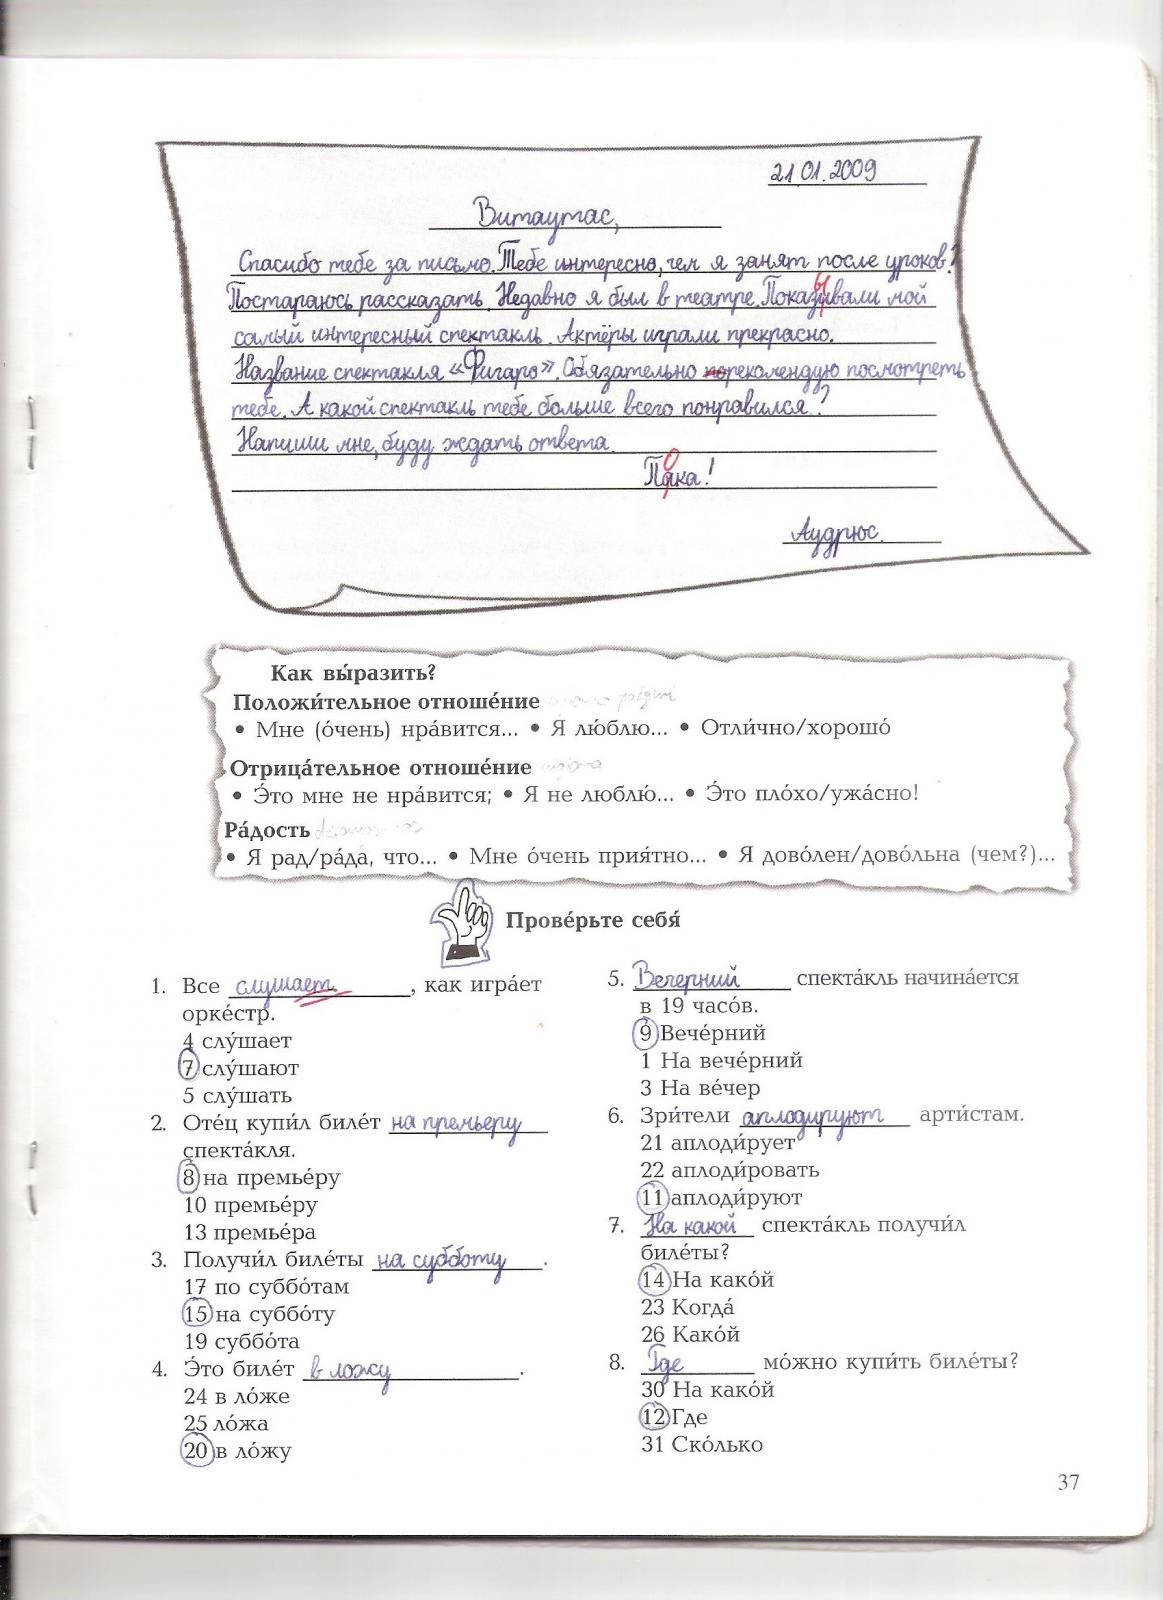 21.01.2009
Витаутас,
Спасибо тебе за письмо. Тебе интересно, чем я занят после уроков?
Постараюсь рассказать. Недавно я был в театре. Показывали мой
самый интересный спектакль. Актёры играли прекрасно.
Название спектакля «Фигаро». Обязательно порекомендую посмотреть
тебе. А какой спектакль тебе больше всего понравился?
Напиши мне, буду ждать ответа.
Пока!
Аудрюс.
Как вы́разить?
Положи́тельное отноше́ние
• Мне (о́чень) нра́вится... • Я люблю́... • Отли́чно/хорошо́
Отрица́тельное отноше́ние
• Э́то мне не нра́вится; • Я не люблю́... • Э́то пло́хо/ужа́сно!
Ра́дость
• Я рад/ра́да, что... • Мне о́чень прия́тно... • Я дово́лен/дово́льна (чем?)...
Прове́рьте себя́
1. Все слушает, как игра́ет
орке́стр.
4 слу́шает
7 слу́шают
5 слу́шать
2. Оте́ц купи́л биле́т на премьеру
спекта́кля.
8 на премье́ру
10 премье́ру
13 премье́ра
3. Получи́л биле́ты на субботу.
17 по суббо́там
15 на суббо́ту
19 суббо́та
4. Э́то биле́т в ложу.
24 в ло́же
25 ло́жа
20 в ло́жу
5. Вечерний спекта́кль начина́ется
в 19 часо́в.
9 Вече́рний
1 На вече́рний
3 На ве́чер
6. Зри́тели аплодируют арти́стам.
21 аплоди́рует
22 аплоди́ровать
11 аплоди́руют
7. На какой спекта́кль получи́л
биле́ты?
14 На како́й
23 Когда́
26 Како́й
8. Где мо́жно купи́ть биле́ты?
30 На како́й
12 Где
31 Ско́лько
37